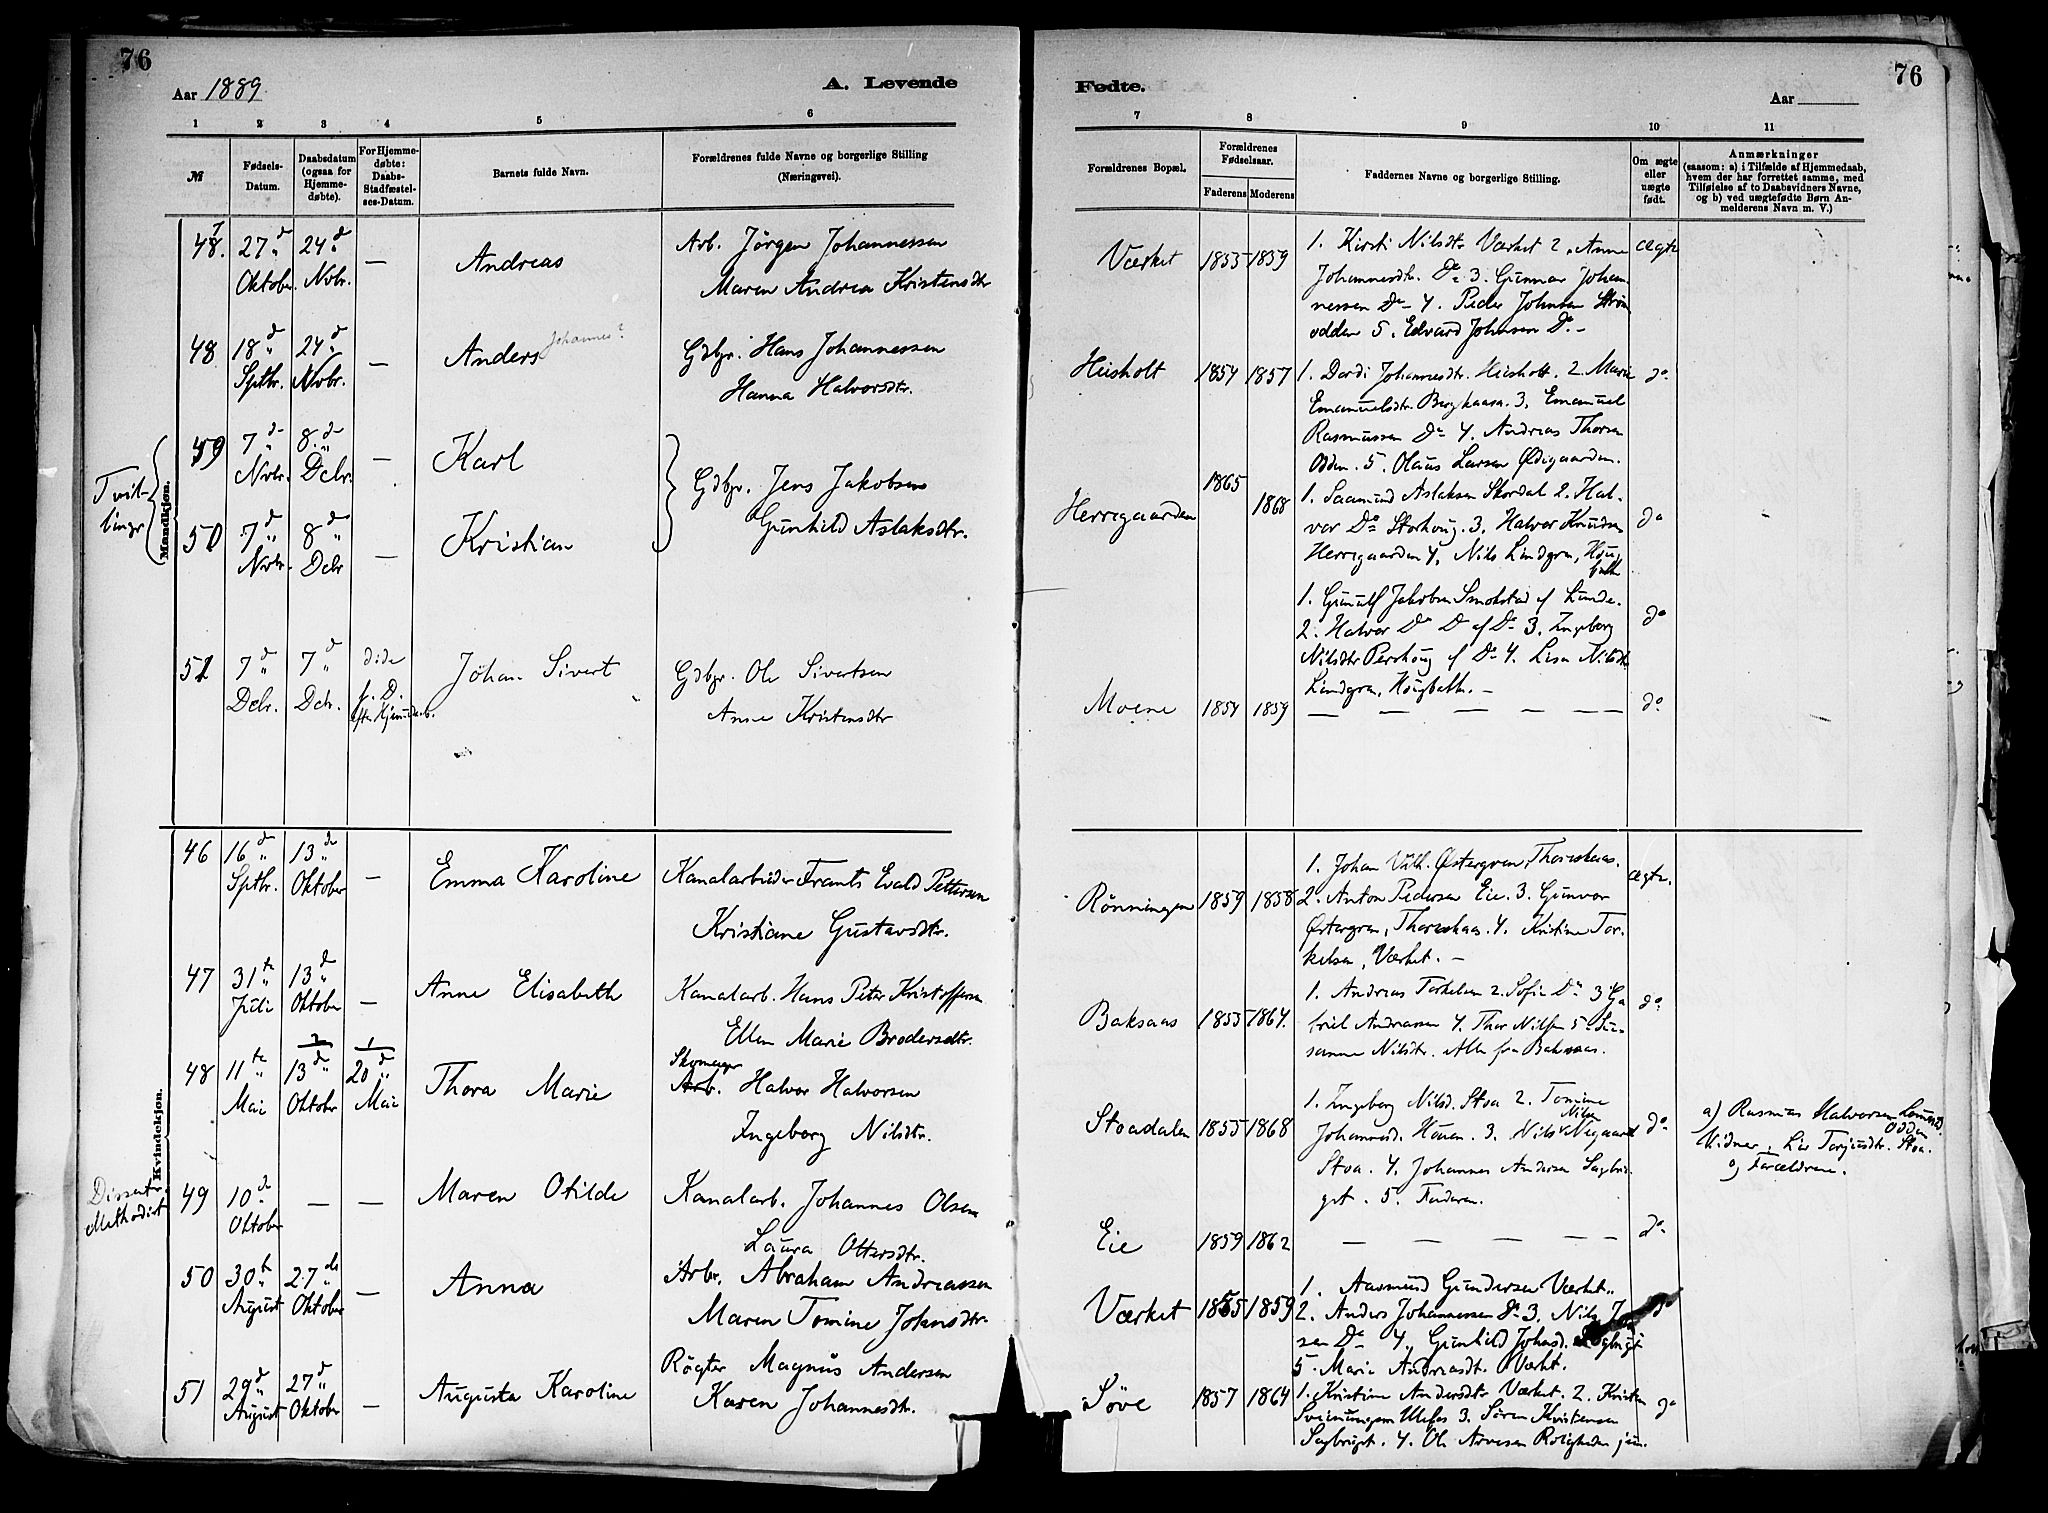 76
Aar 1889
A. Levende
1 2 3 4 5 6
№
Fødsels-Datum.
Daabsdatum (ogsaa for Hjemme-døbte).
For Hjemme-døbte: Daabs-Stadfæstel-ses-Datum.
Barnets fulde Navn.
Forældrenes fulde Navne og borgerlige Stilling
(Næringsvei).
Mandkjøn.
47. 27d Oktober. 24d Nvbr. — Andreas
Arb. Jørgen Johannessen
Maren Andrea Kristensdtr
48 18d Sptbr. 24d Nvbr. — Anders Johannes?
Gdbr. Hans Johannessen
Hanna Halvorsdtr.
Tvil-
linger
49 7d Nvbr. 8d Dcbr. — Karl
Gdbr. Jens Jakobsen
Gunhild Aslaksdtr.
50 7d Nvbr. 8d Dcbr — Kristian
51 7d Dcbr. 7d Dcbr. døde f. D. efter Hjemmedaab. Johan Sivert
Gdbr. Ole Sivertsen
Anne Kristensdtr
Kvindekjøn.
46 16d Sptbr. 13de Oktober — Emma Karoline
Kanalarbeider Frants Evald Pettersen
Kristiane Gustavsdtr.
47 31te Juli 13d Oktober — Anne Elisabeth
Kanalarb. Hans Peter Kristoffersen
Ellen Marie Brodersdtr.
2 1
48 11te Mai 13d Oktober 20d Mai Thora Marie
Skomager
Arb. Halvor Halvorsen
Ingeborg Nilsdtr.
Dissenter
Methodist
49 10de Oktober — — Maren Otilde
Kanalarb. Johannes Olsen
Laura Ottersdtr.
50 30te August 27de Oktober — Anna
Arbr. Abraham Andreassen
Maren Tomine Johnsdtr.
51 29d August 27d Oktober — Augusta Karoline
Røgter Magnus Andersen
Karen Johannesdtr.
Fødte.
76
Aar
7 8 9 10 11
Forældrenes Bopæl.
Forældrenes Fødselsaar.
Faderens Moderens
Faddernes Navne og borgerlige Stilling.
Om ægte eller uægte født.
Anmærkninger
(saasom: a) i Tilfælde af Hjemmedaab,
hvem der har forrettet samme, med
Tilføielse af to Daabsvidners Navne,
og b) ved uægtefødte Børn An-
melderens Navn m. V.)
Værket 1853 1859
1. Kirsti Nilsdtr Værket 2. Anne ægte
Johannesdtr. Do 3. Gunnar Johan-
nessen Do 4. Peder Johnsen Strøm
odden 5. Edvard Johnsen Do —
Heisholt 1854 1857
1. Dordi Johannesdtr. Heisholt. 2. Marie do
Emanuelsdtr. Berghaasa. 3. Emanuel
Rasmussen Do 4. Andreas Thorsen
Odden. 5. Olaus Larsen Ødegaarden.
Herregaarden 1865 1868
1. Saamund Aslaksen Skordal 2. Hal-
vor Do Storhoug. 3. Halvor Knudsen do
Herregaarden 4. Nils Lindgren, Houg
bakk
1. Gunulf Jakobsen Smokstad af Lunde.
2. Halvor Do Do af Do 3. Ingeborg do
Nilsdtr Pershoug af Do 4. Lisa Nilsdtr
Lindgren, Hougbakk. —
Moene 1854 1859 — — — — — do
Rönningen 1859 1858
1. Johan Vilh. Østergren, Thoreskaas. ægte.
2. Anton Pedersen Eie. 3. Gunvor
Østergren, Thoreskaas. 4. Kristine Tor-
kelsen, Værket. —
Baksaas 1853 1864.
1. Andreas Torkelsen 2. Sofie Do 3 Ga do.
briel Andreassen 4. Thor Nilsen 5. Su-
sanne Nilsdtr. Alle fra Baksaas.
Stoadalen 1855 1868
1. Ingeborg Nilsd. Stoa 2. Tomine
Johannesd. Houen. 3. Nils Nilsen Nygaard do
Stoa. 4. Johannes Andersen Sagbrug-
get. 5. Faderen.
a) Rasmus Halvorsen
Odden
Vidner. Lis Torjusdtr. Stoa.
og Forældrene.
Eie 1859 1862 — — — — — do
Værket 1855 1859
1. Aasmund Gundersen Værket.
2. Anders Johannessen Do 3. Nils do
sen Do 4. Gunhild Johnsd. Sagbrugt
5. Marie Andreasdt. Værket.
Søve 1857 1864
1. Kristine Andersdtr Værket. 2. Kristen do
Sveinungsen Ulefos 3. Søren Kristensen
Sagbruget. 4. Ole Arvesen Roligheden jun.